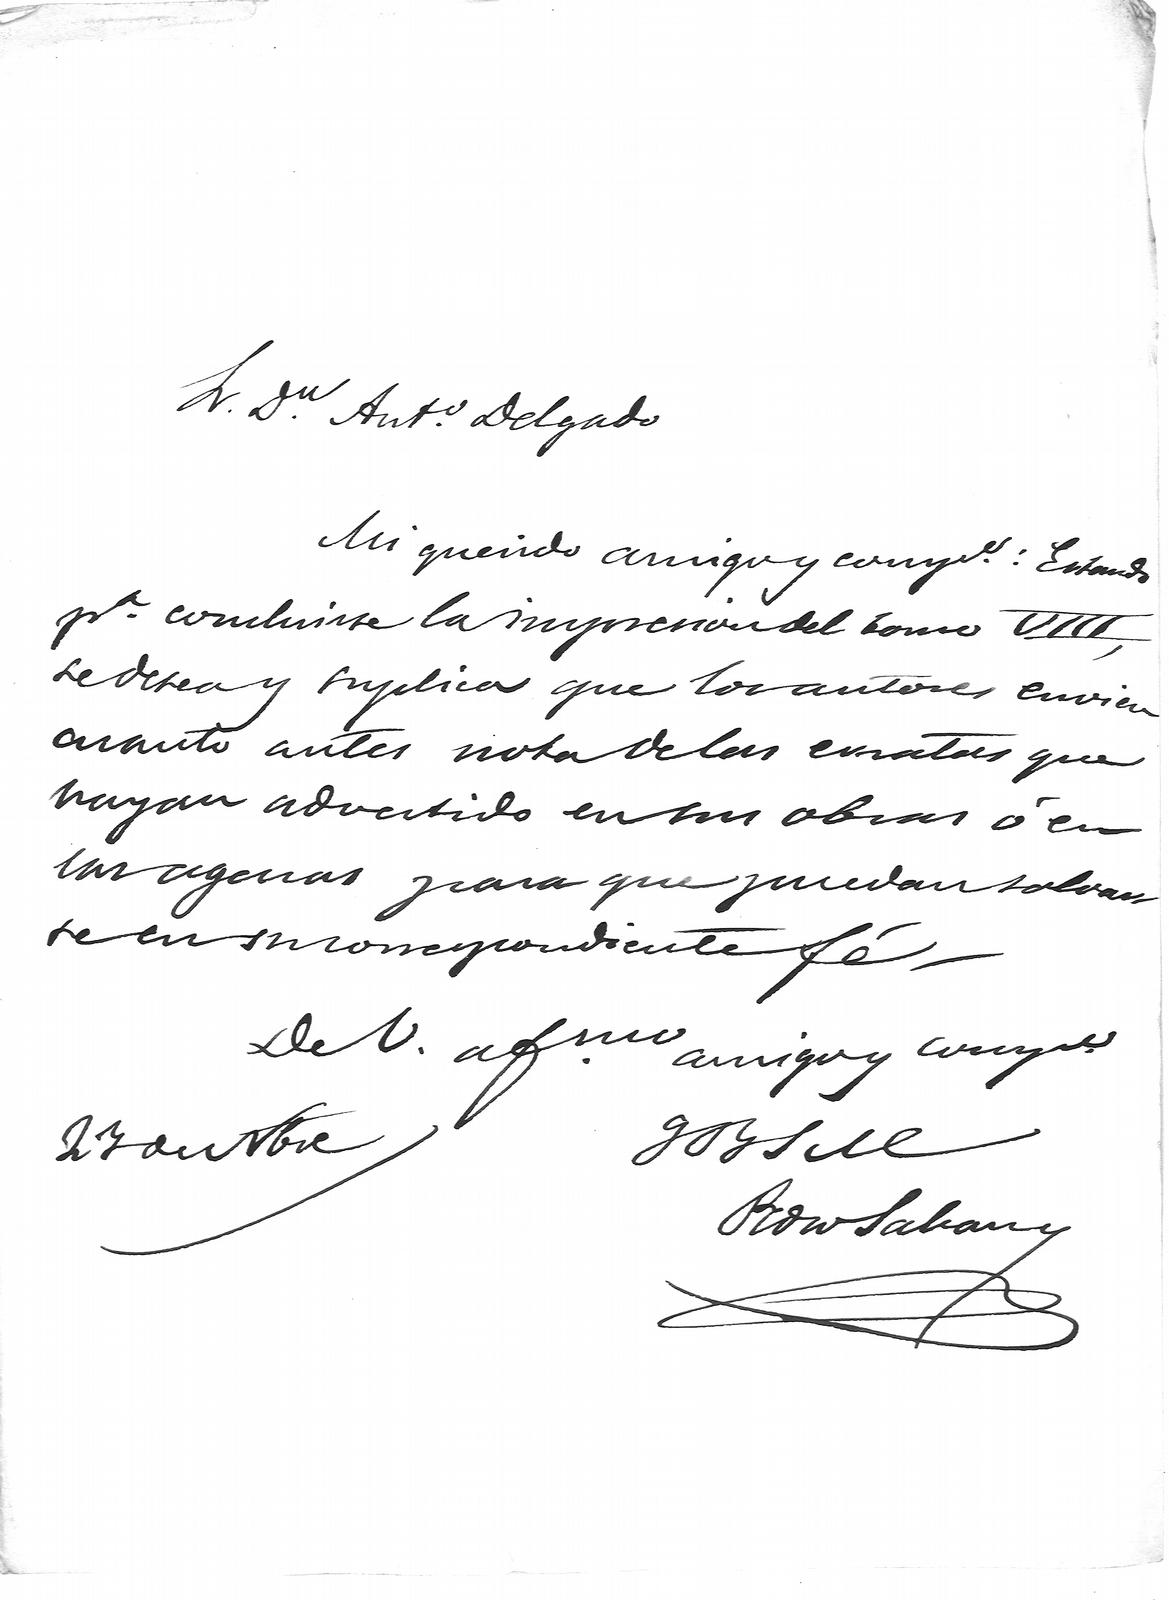 Sr. Dn. Anto. Delgado
Mi querido amigo y compo.: Estando
pa. concluirse la impresion del tomo VIII,
se desea y suplica que los autores envien
cuanto antes nota de las erratas que
hayan advertido en sus obras ó en
las agenas para que puedan salvar
se en su correspondiente fé.
De V. afmo. amigo y compo.
23 de Obre
Pedro Sabau